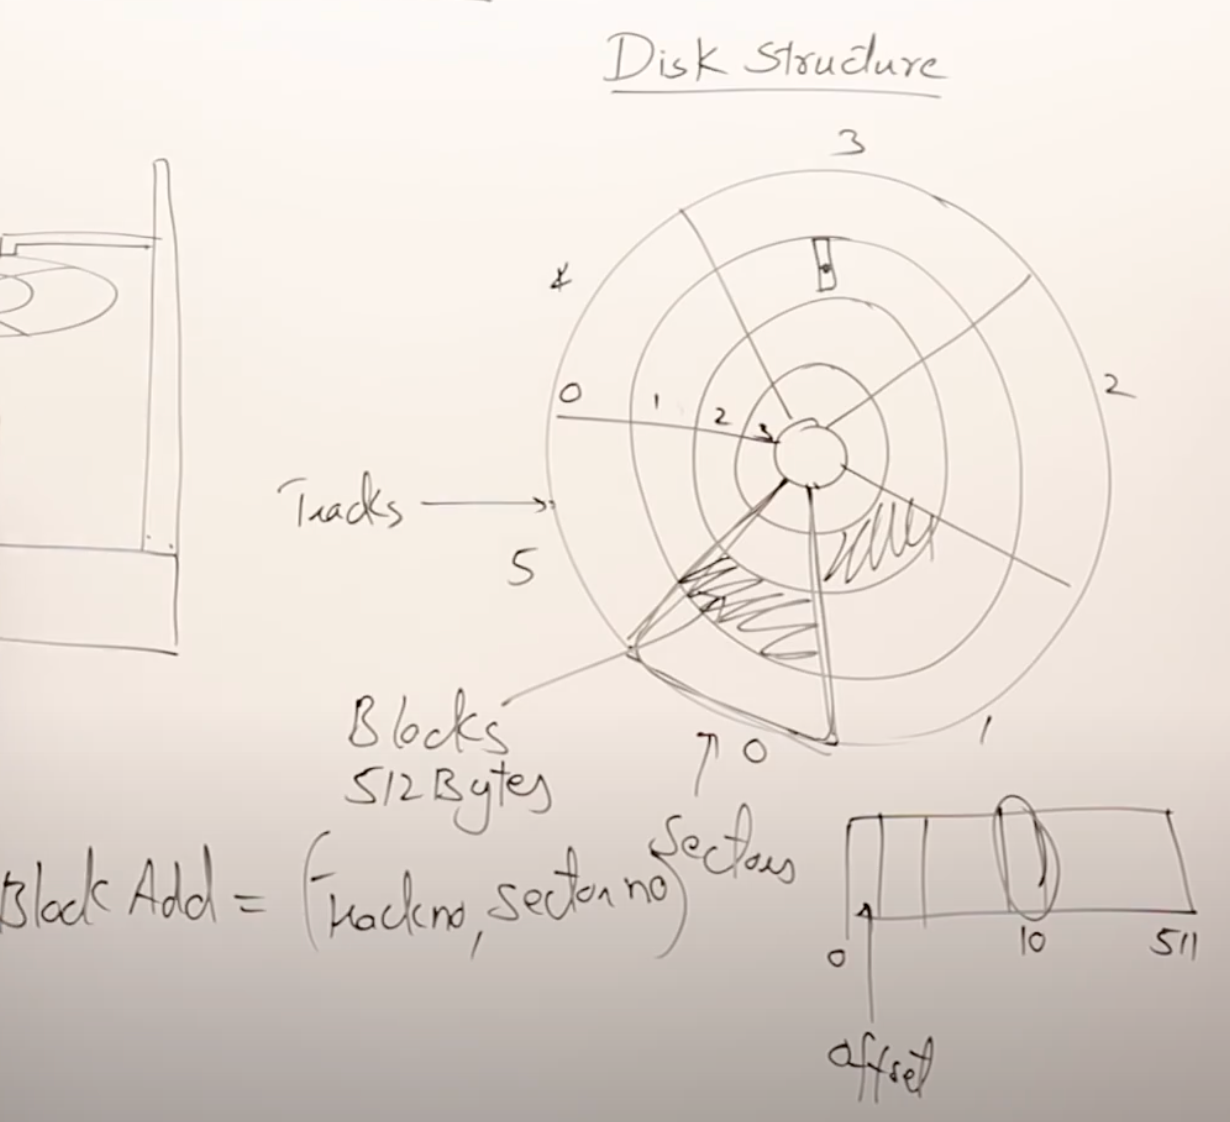 Disk Structure
3
4
0
1
2
3
2
Tracks
5
Blocks
512 Bytes
0
1
Sectors
Block Add = (Track no, sector no)
0
10
511
offset